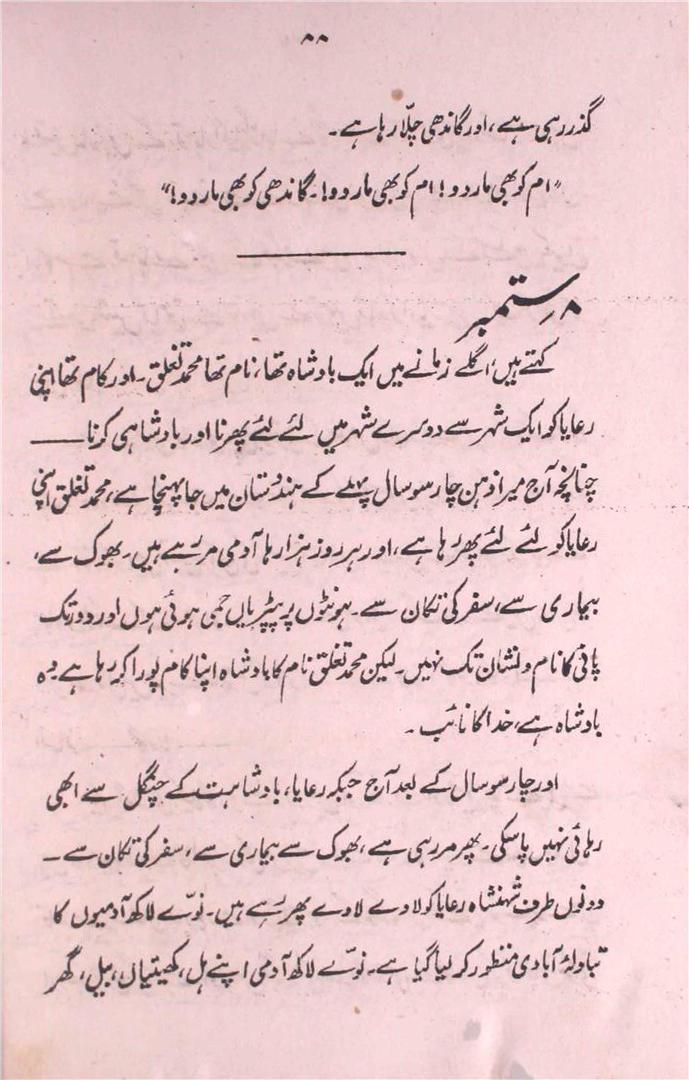 ۸۸
گذر رہی ہے، اور گاندھی چلّا رہا ہے۔
"ام کو بھی مار دو! ام کو بھی مار دو!۔ گاندھی کو بھی مار دو!"
۸ ستمبر
کہتے ہیں، اگلے زمانے میں ایک بادشاہ تھا، نام تھا محمد تغلق۔ اور کام تھا اپنی
رعایا کو ایک شہر سے دوسرے شہر میں لئے لئے پھرنا اور بادشاہی کرنا ——
چنانچہ آج میرا ذہن چار سو سال پہلے کے ہندوستان میں جا پہنچا ہے، محمد تغلق اپنی
رعایا کو لئے لئے پھر رہا ہے، اور ہر روز ہزارہا آدمی مر رہے ہیں۔ بھوک سے،
بیماری سے، سفر کی تکان سے۔ ہونٹوں پر پپٹریاں جمی ہوئی ہوں اور دور تک
پانی کا نام و نشان تک نہیں۔ لیکن محمد تغلق نام کا بادشاہ اپنا کام پورا کر رہا ہے وہ
بادشاہ ہے، خدا کا نائب۔
اور چار سو سال کے بعد آج جبکہ رعایا، بادشاہت کے چنگل سے ابھی
رہائی نہیں پا سکی۔ پھر مر رہی ہے، بھوک سے بیماری سے، سفر کی تکان سے۔
دونوں طرف شہنشاہ رعایا کو لادے لادے پھر رہے ہیں۔ نوّے لاکھ آدمیوں کا
تبادلۂ آبادی منظور کر لیا گیا ہے۔ نوّے لاکھ آدمی اپنے ہل، کھیتیاں، بیل، گھر